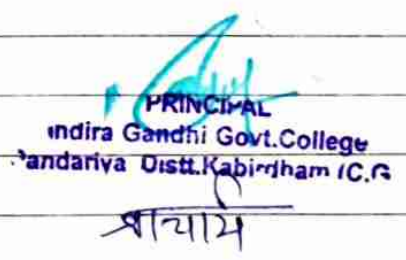 PRINCIPAL
Indira Gandhi Govt.College
Pandariya Distt.Kabirdham (C.G
प्राचार्य